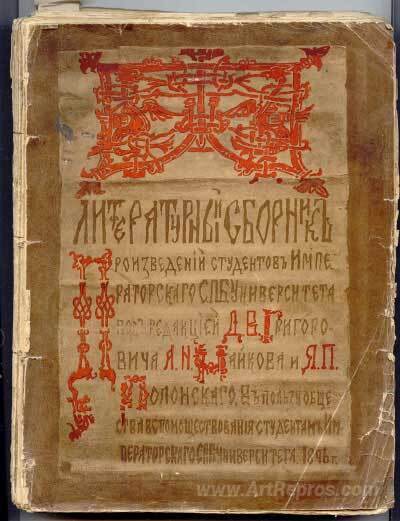 ЛИТЕРАТУРНЫЙ СБОРНИКЪ
ПРОИЗВЕДЕНІЙ СТУДЕНТОВЪ ИМПЕ
РАТОРСКАГО СПБ УНИВЕРСИТЕТА
ПОДЪ РЕДАКЦІЕЙ Д.В. ГРИГОРО
ВИЧА А.Н. МАЙКОВА И Я.П.
ПОЛОНСКАГО. ВЪ ПОЛЬЗУ ОБЩЕ
СТВА ВСПОМОЩЕСТВОВАНІЯ СТУДЕНТАМЪ ИМ
ПЕРАТОРСКАГО СПБ УНИВЕРСИТЕТА. 1896 г.
www.ArtRepros.com